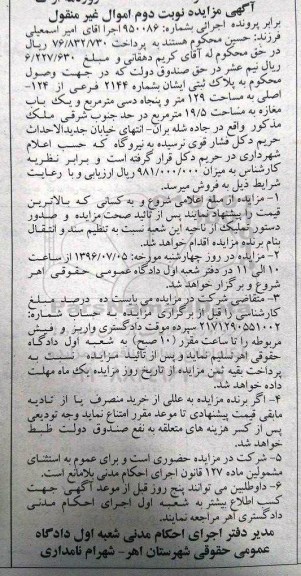 آگهی مزایده نوبت دوم اموال غیر منقول
برابر پرونده اجرائی بشماره: ۹۵۰۰۸۶ اجرا آقای امیر اسمعیلی
فرزند: حسین محکوم هستند به پرداخت ۷۶/۸۳۲/۷۳۰ ریال
در حق محکوم له آقای کریم دهقانی و مبلغ ۶/۲۲۷/۶۳۰
ریال نیم عشر در حق صندوق دولت که در جهت وصول
محکوم به پلاک ثبتی ایشان بشماره ۲۱۴۴ فرعی از ۱۲۴-
اصلی به مساحت ۱۲۹ متر و پنجاه دسی مترمربع و یک باب
مغازه به مساحت ۱۹/۵ مترمربع در حد جنوب شرقی ملک
مذکور واقع در جاده شله بران- انتهای خیابان جدیدالاحداث
حریم دکل فشار قوی نرسیده به نیروگاه که حسب اعلام
شهرداری در حریم دکل قرار گرفته است و برابر نظریه
کارشناس به میزان ۹۸۱/۰۰۰/۰۰۰ ریال ارزیابی و با رعایت
شرایط ذیل به فروش میرسد.
۱- مزایده از مبلغ اعلامی شروع و به کسانی که بالاترین
قیمت را پیشنهاد نمایند پس از تائید صحت مزایده و صدور
دستور تملیک از ناحیه این شعبه نسبت به تنظیم سند و انتقال
بنام برنده مزایده اقدام خواهد شد.
۲- مزایده در روز چهارشنبه مورخه: ۱۳۹۶/۰۷/۰۵ از ساعت
۱۰ الی ۱۱ در دفتر شعبه اول دادگاه عمومی حقوقی اهر
شروع و برگزار خواهد شد.
۳- متقاضی شرکت در مزایده می بایست ده درصد مبلغ
کارشناسی را قبل از برگزاری مزایده به حساب شماره:
۲۱۷۱۲۹۰۵۵۱۰۰۲ سپرده موقت دادگستری واریز و فیش
مربوطه را تا ساعت مقرر (۱۰ صبح) به شعبه اول دادگاه
حقوقی اهر تسلیم نماید و پس از تائید مزایده نسبت به
پرداخت بقیه ثمن مزایده از تاریخ روز مزایده یک ماه مهلت
داده خواهد شد.
۴- اگر برنده مزایده به عللی از خرید منصرف یا از تادیه
مابقی قیمت پیشنهادی تا موعد مقرر امتناع نماید وجه تودیعی
پس از کسر هزینه های متعلقه به نفع صندوق دولت ضبط
خواهد شد.
۵- شرکت در مزایده حضوری است و برای عموم به استثنای
مشمولین ماده ۱۲۷ قانون اجرای احکام مدنی بلامانع است.
۶- داوطلبین می توانند پنج روز قبل از موعد آگهی جهت
کسب اطلاع بیشتر به شعبه اول اجرای احکام مدنی
دادگستری اهر مراجعه نمایند.
مدیر دفتر اجرای احکام مدنی شعبه اول دادگاه
عمومی حقوقی شهرستان اهر- شهرام نامداری